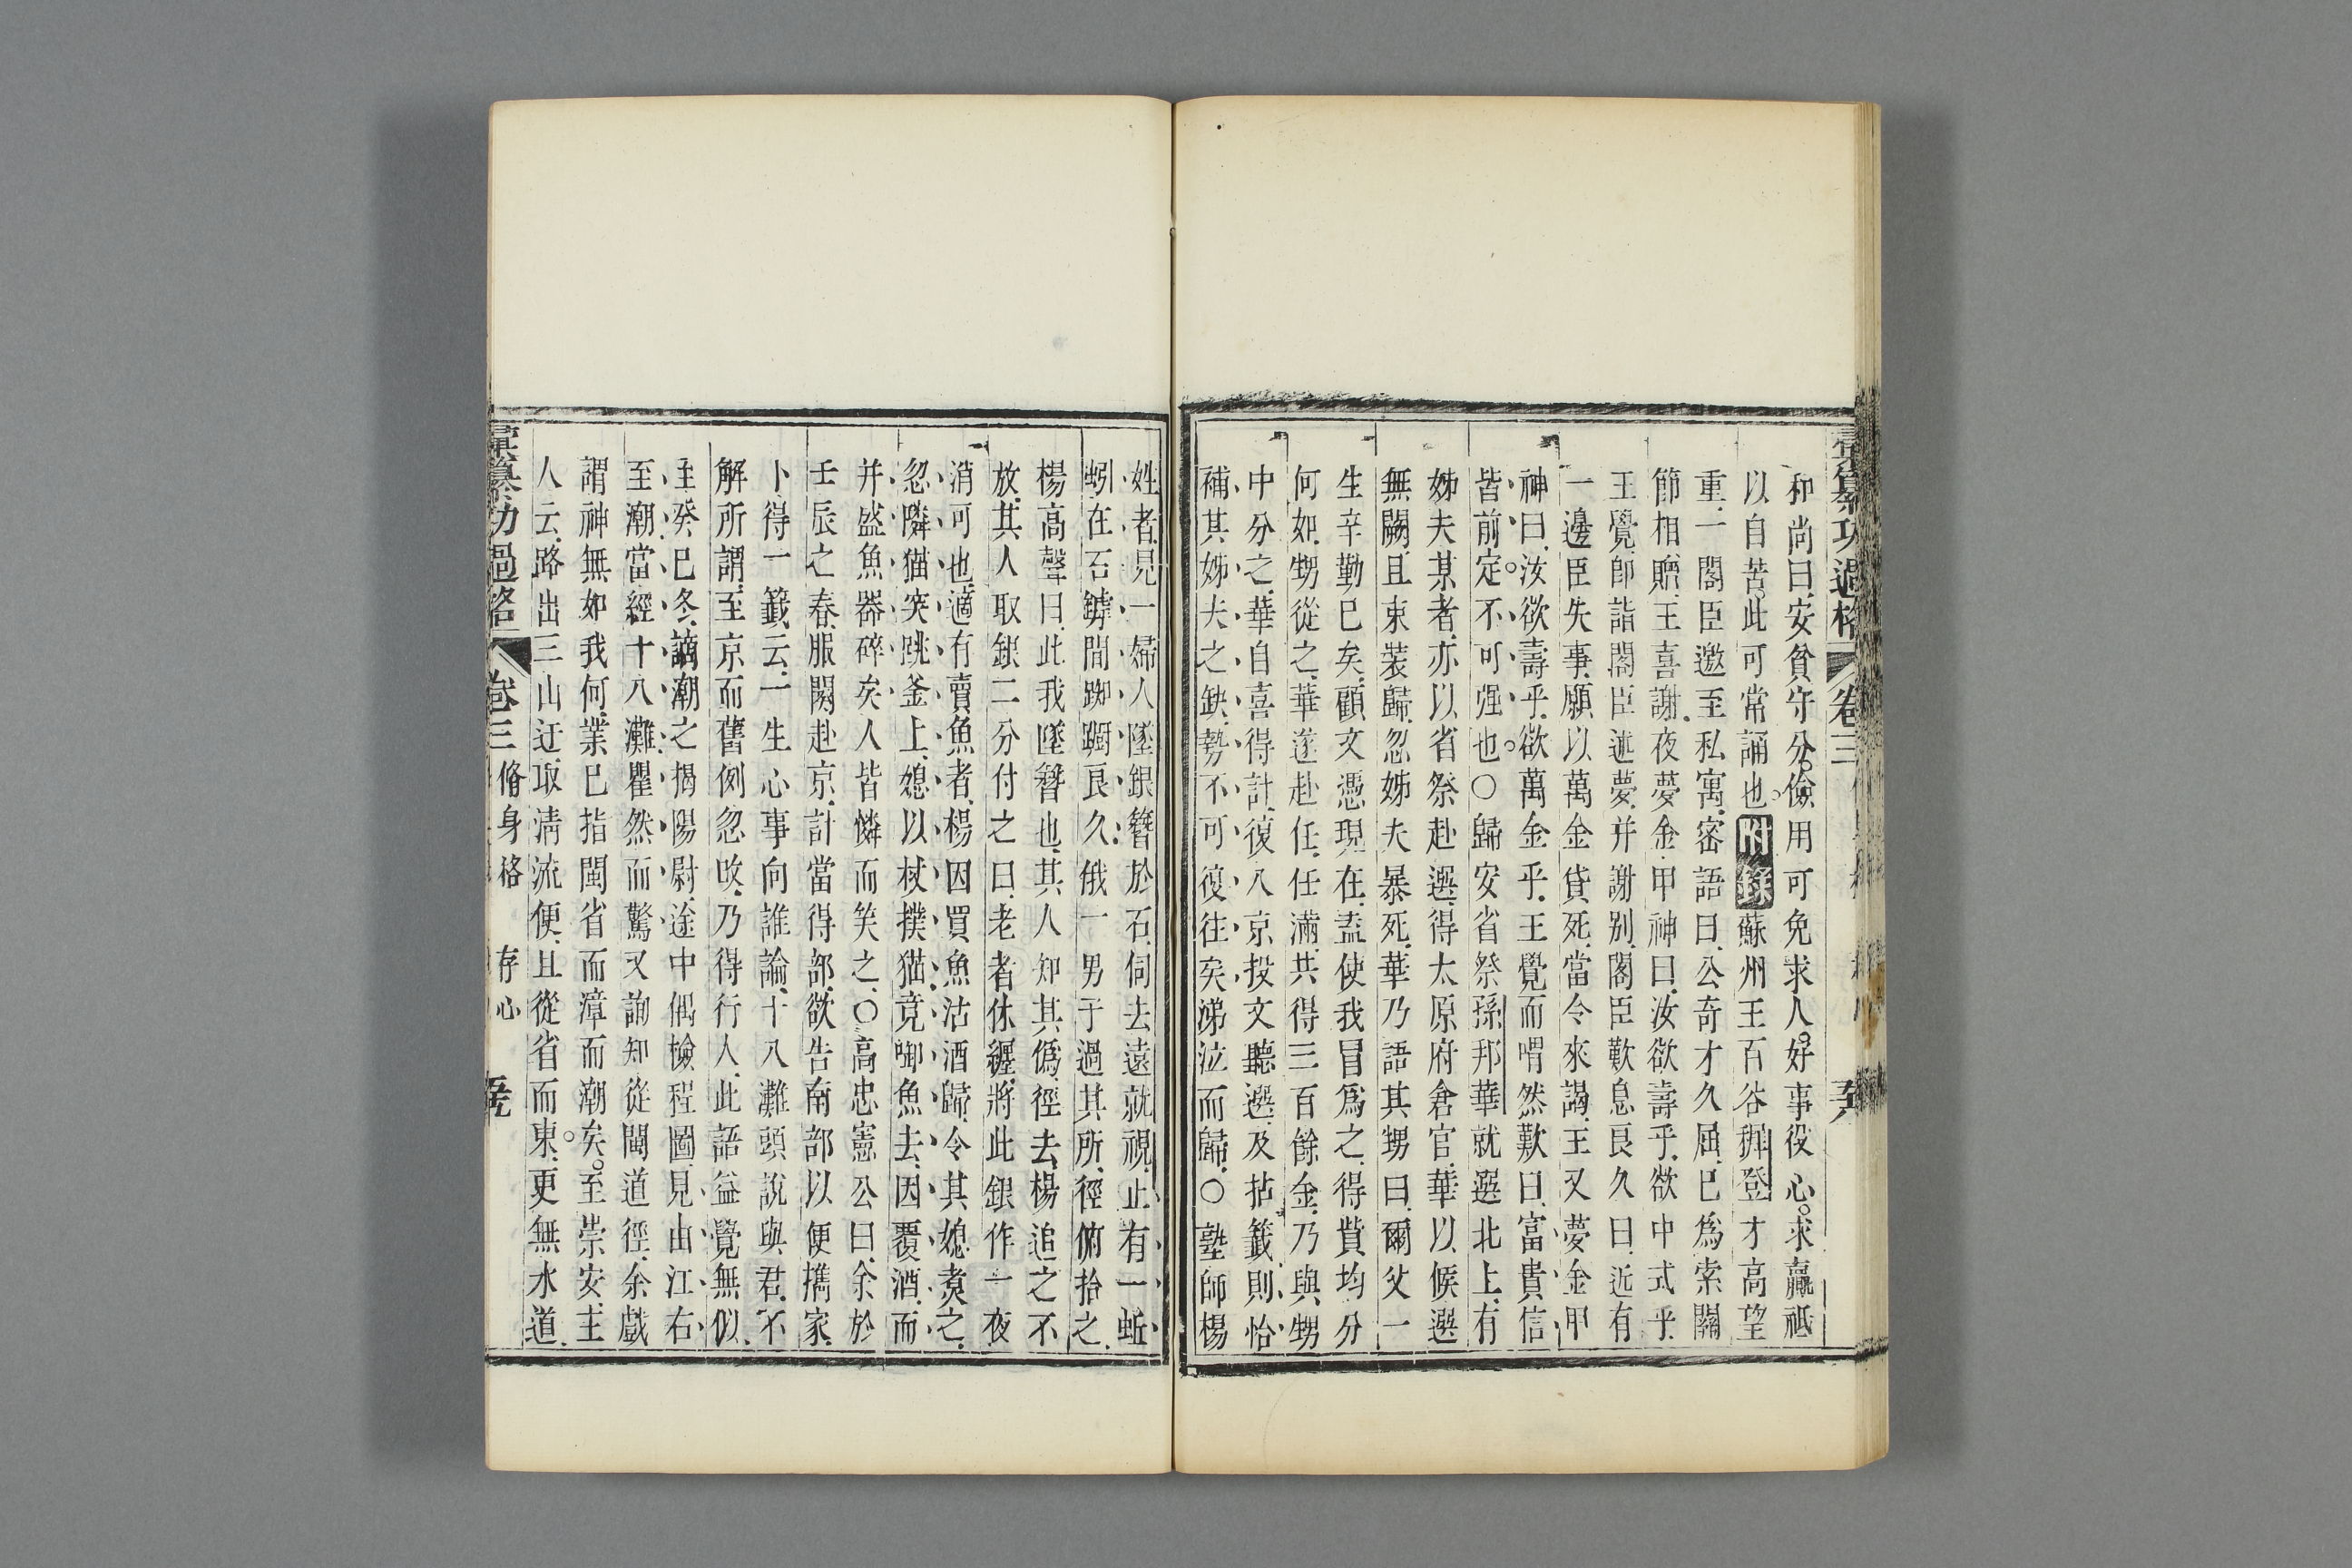 彙纂功過格 卷三
和尚曰安貧守分儉用可免求人好事役心求贏祗
以自苦此可常誦也附錄蘇州王百谷穉登才高望
重一閣臣邀至私寓密語曰公奇才久屈已爲索關
節相贈王喜謝夜夢金甲神曰汝欲壽乎欲中式乎
王覺卽詣閣臣述夢并謝别閣臣歎息良久曰近有
一邊臣失事願以萬金貸死當令來謁王又夢金甲
神曰汝欲壽乎欲萬金乎王覺而喟然歎曰富貴信
皆前定不可强也○歸安省祭孫邦華就選北上有
姊夫某者亦以省祭赴選得太原府倉官華以候選
無闕且束裝歸忽姊夫暴死華乃語其甥曰爾父一
生辛勤已矣顧文憑現在盍使我冒爲之得貲均分
何如甥從之華遂赴任任滿共得三百餘金乃與甥
中分之華自喜得計復入京投文聽選及拈籤則恰
補其姊夫之缺勢不可復往矣涕泣而歸○塾師楊
姓者見一婦人墜銀簪於石伺去遠就視止有一蚯
蚓在石罅間踟躕良久俄一男子過其所徑俯拾之
楊高聲曰此我墜簪也其人知其僞徑去楊追之不
放其人取銀二分付之曰老者休纏將此銀作一夜
消可也適有賣魚者楊因買魚沽酒歸令其媳煑之
忽隣猫突跳釜上媳以杖撲猫竟啣魚去因覆酒而
并盛魚器碎矣人皆憐而笑之○高忠憲公曰余於
壬辰之春服闋赴京計當得部欲告南部以便攜家
卜得一籤云一生心事向誰論十八灘頭說與君不
解所謂至京而舊例忽改乃得行人此語益覺無似
至癸巳冬謫潮之揭陽尉途中偶檢程圖見由江右
至潮當經十八灘瞿然而驚又詢知從閩道徑余戲
謂神無如我何業已指閩省而漳而潮矣至崇安主
人云路出三山迂取淸流便且從省而東更無水道
彙纂功過格 卷三 脩身格 存心